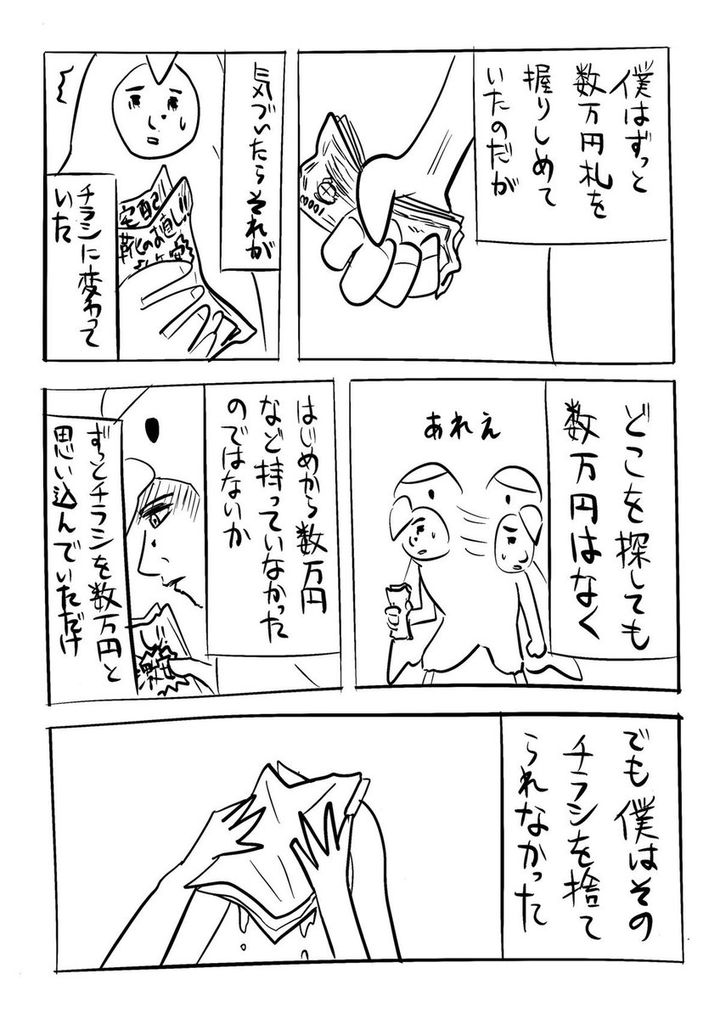 僕はずっと
数万円札を
握りしめて
いたのだが
10001
気づいたらそれが
宅配
靴のお直し
チラシに変わって
いた
どこを探しても
数万円はなく
あれえ
はじめから数万円
など持っていなかった
のではないか
ずっとチラシを数万円と
思い込んでいただけ
でも僕はその
チラシを捨て
られなかった